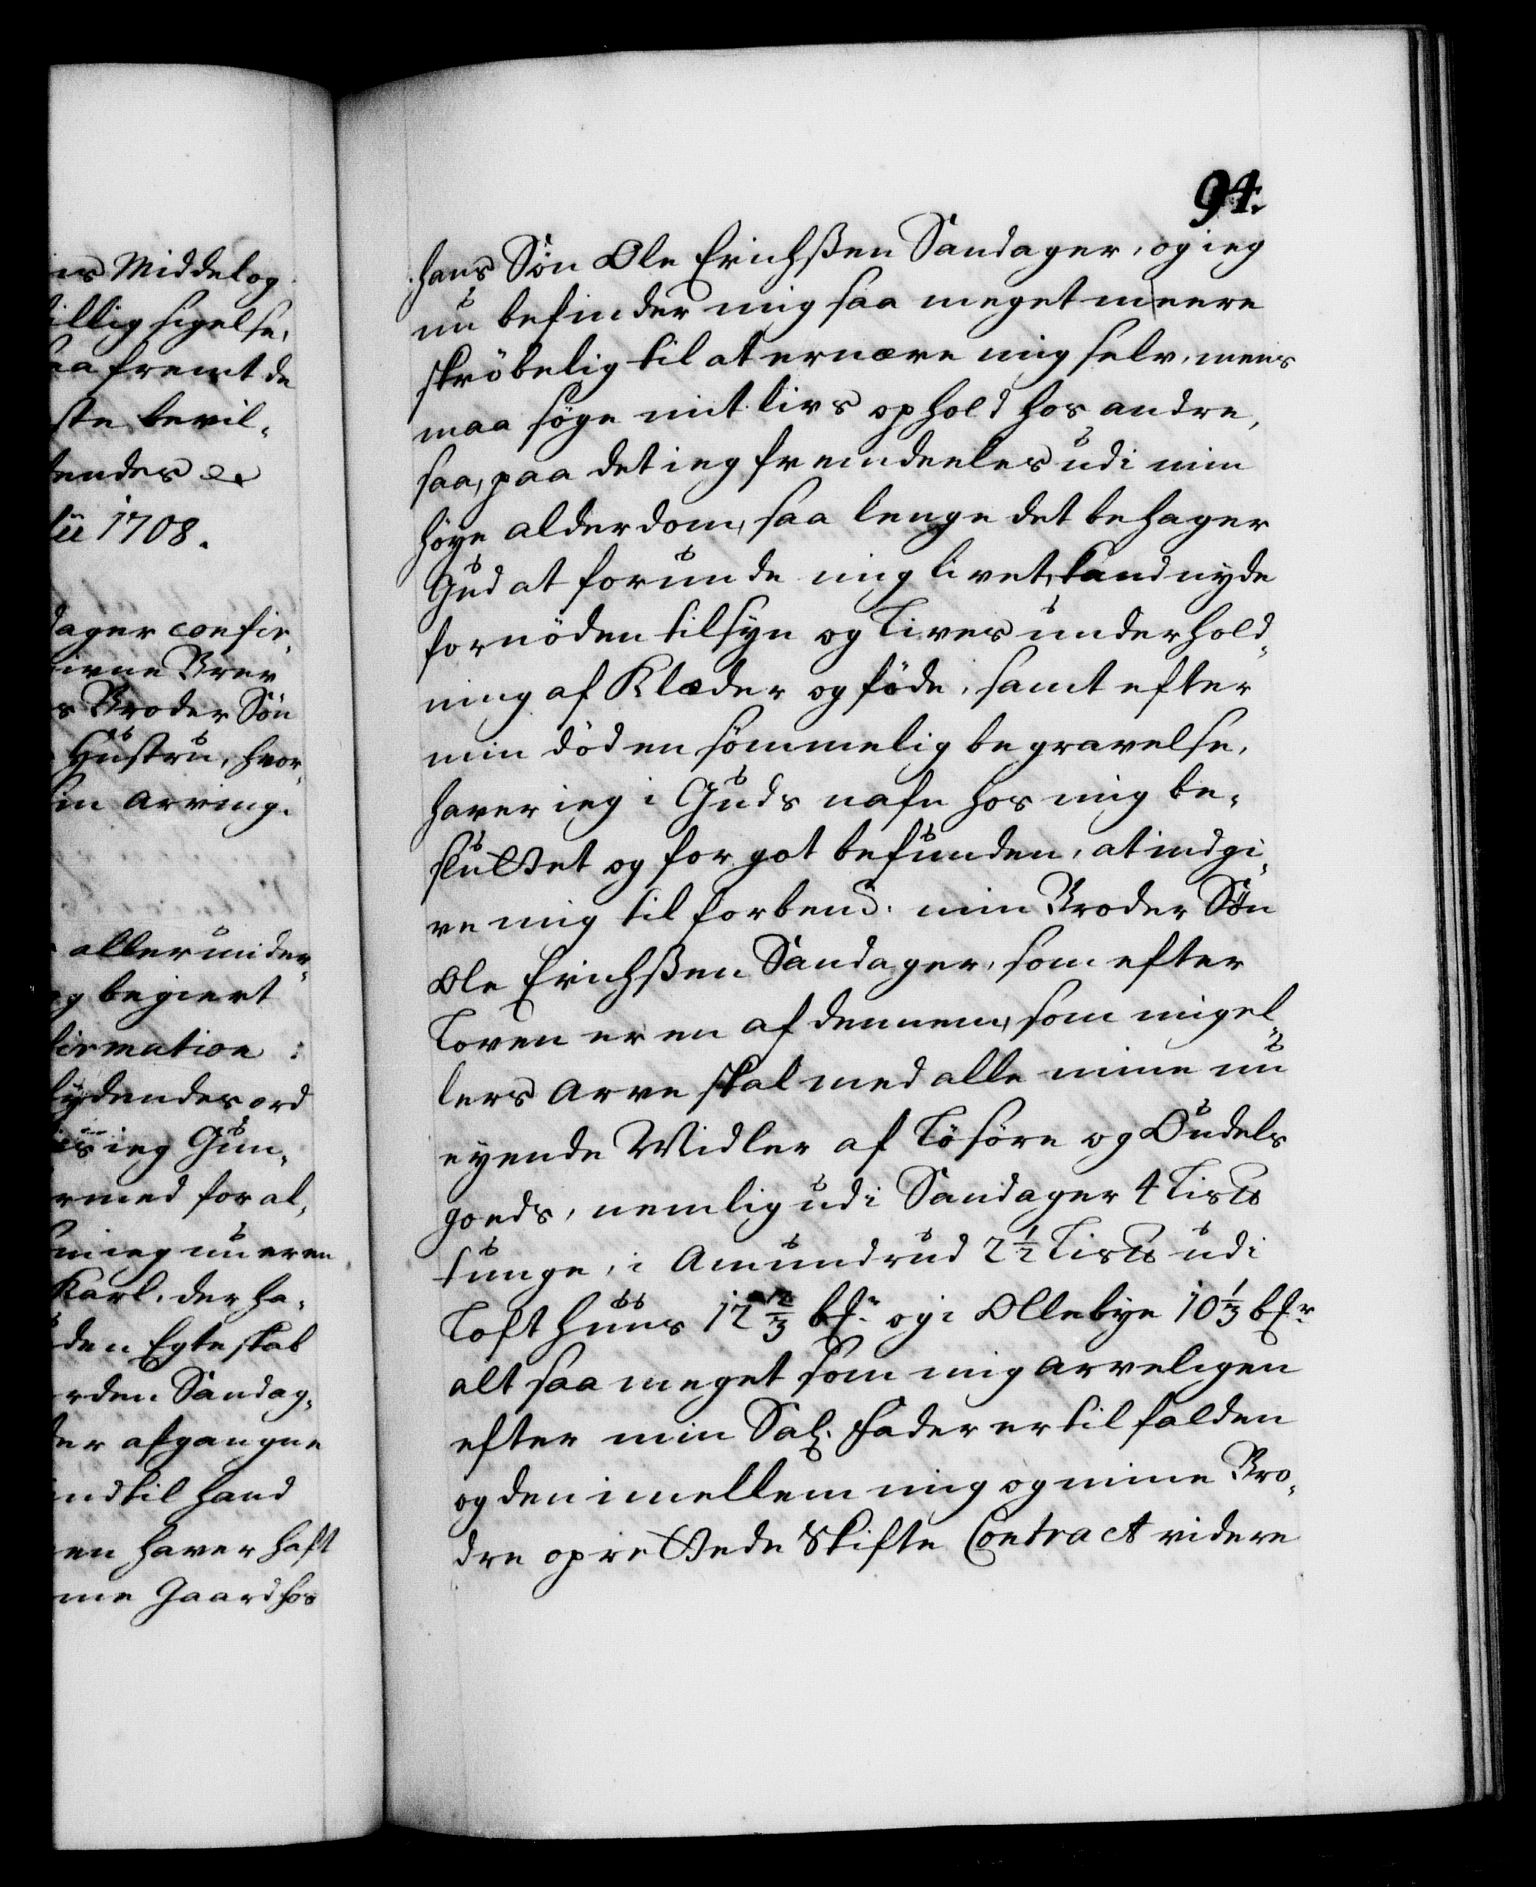 es Middel og
villig sigelse,
saa fremt de
ste bevil-
tendes
lii 1708.
dager confir-
givne Brev
s Broder Søn
Hustru, hvor-
sin arving.
allerunder-
og begiert
firmation:
lydendes ord
ieg Gun-
rmed for al-
som ieg nu er en
Karl, der ha-
den Egteskab
rden Sandag-
der afgangne
ind til hand
en haver haft
me Gaard hos
94.
hans Søn Ole Erichssen Sandager, og ieg
nu befinder mig saa meget meere
skrøbelig til at ernære mig selv, mens
maa søge mit livs ophold hos andre,
saa, paa det ieg fremdeeles udi min
høye alderdom, saa lenge det behager
Gud at forunde mig livet, kand nyde
fornøden tilsyn og Lives underhold-
ning af Klæder og føde, samt efter
min død en sømmelig begravelse,
haver ieg i Guds nafn hos mig be-
sluttet og for got befunden, at indgi-
ve mig til forbem.te min Broder Søn
Ole Erichssen Sandager, som efter
Loven er en af dennem, som mig el-
lers arve skal med alle mine nu
eyende Midler af Løsøre og Oudels
goeds, nemlig udi Sandager 4 Lis℔
tunge, i Amundrud 2½ Lis℔ udi
Lofthuus 12⅔ bf.r og i Ollebye 10⅓ bf.r
alt saa meget som mig arveligen
efter min Sal. fader er tilfalden
og den imellem mig og mine Brø-
dre oprettede Skifte Contract videre